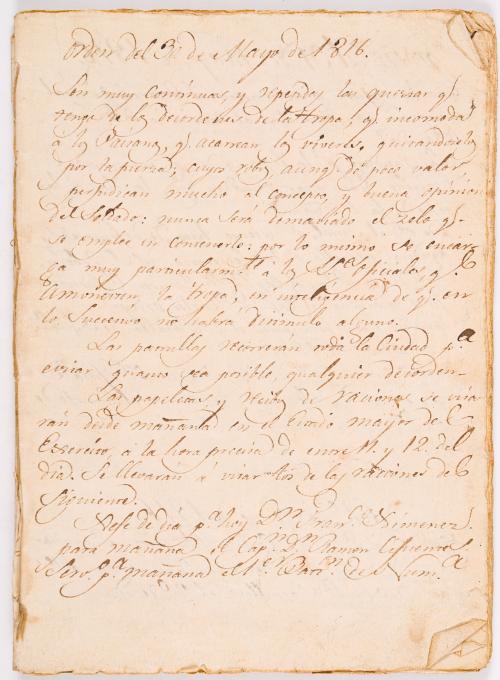 Orden del 31 de Mayo de 1816.
Son muy contínuas, y repetidas las quexas q.e
tengo de los desordenes de la tropa, q.e incomoda
a los Paisanos, q.e acarrean los viveres, quitandoselos
por la fuerza; cuyos robos aunq.e de poco valor
perjudican mucho al concepto, y buena opinion
del Soldado: nunca será demasiado el zelo q.e
se emplee en contenerlo: por lo mismo se encar
ga muy particularm.te á los S.res oficiales q.e
amonesten la tropa, en inteligencia de q.e en
lo Succesivo no habrá disimulo alguno.
Las patrullas recorreran toda la Ciudad p.a
evitar quanto sea posible, qualquier desorden.
Las papeletas, y recivos de raciones se visa
rán desde mañana en el Estado mayor del
Exercito, á la hora precisa de entre 11. y 12. del
dia. Se llevarán á visar los de las raciones del
siguiente.
Xefe de dia p.a hoy D.n Fran.co Ximenez
para mañana el Cap.n D.n Ramon Cifuentes
Serv.o p.a mañana el 1.er Bat.n de Num.a